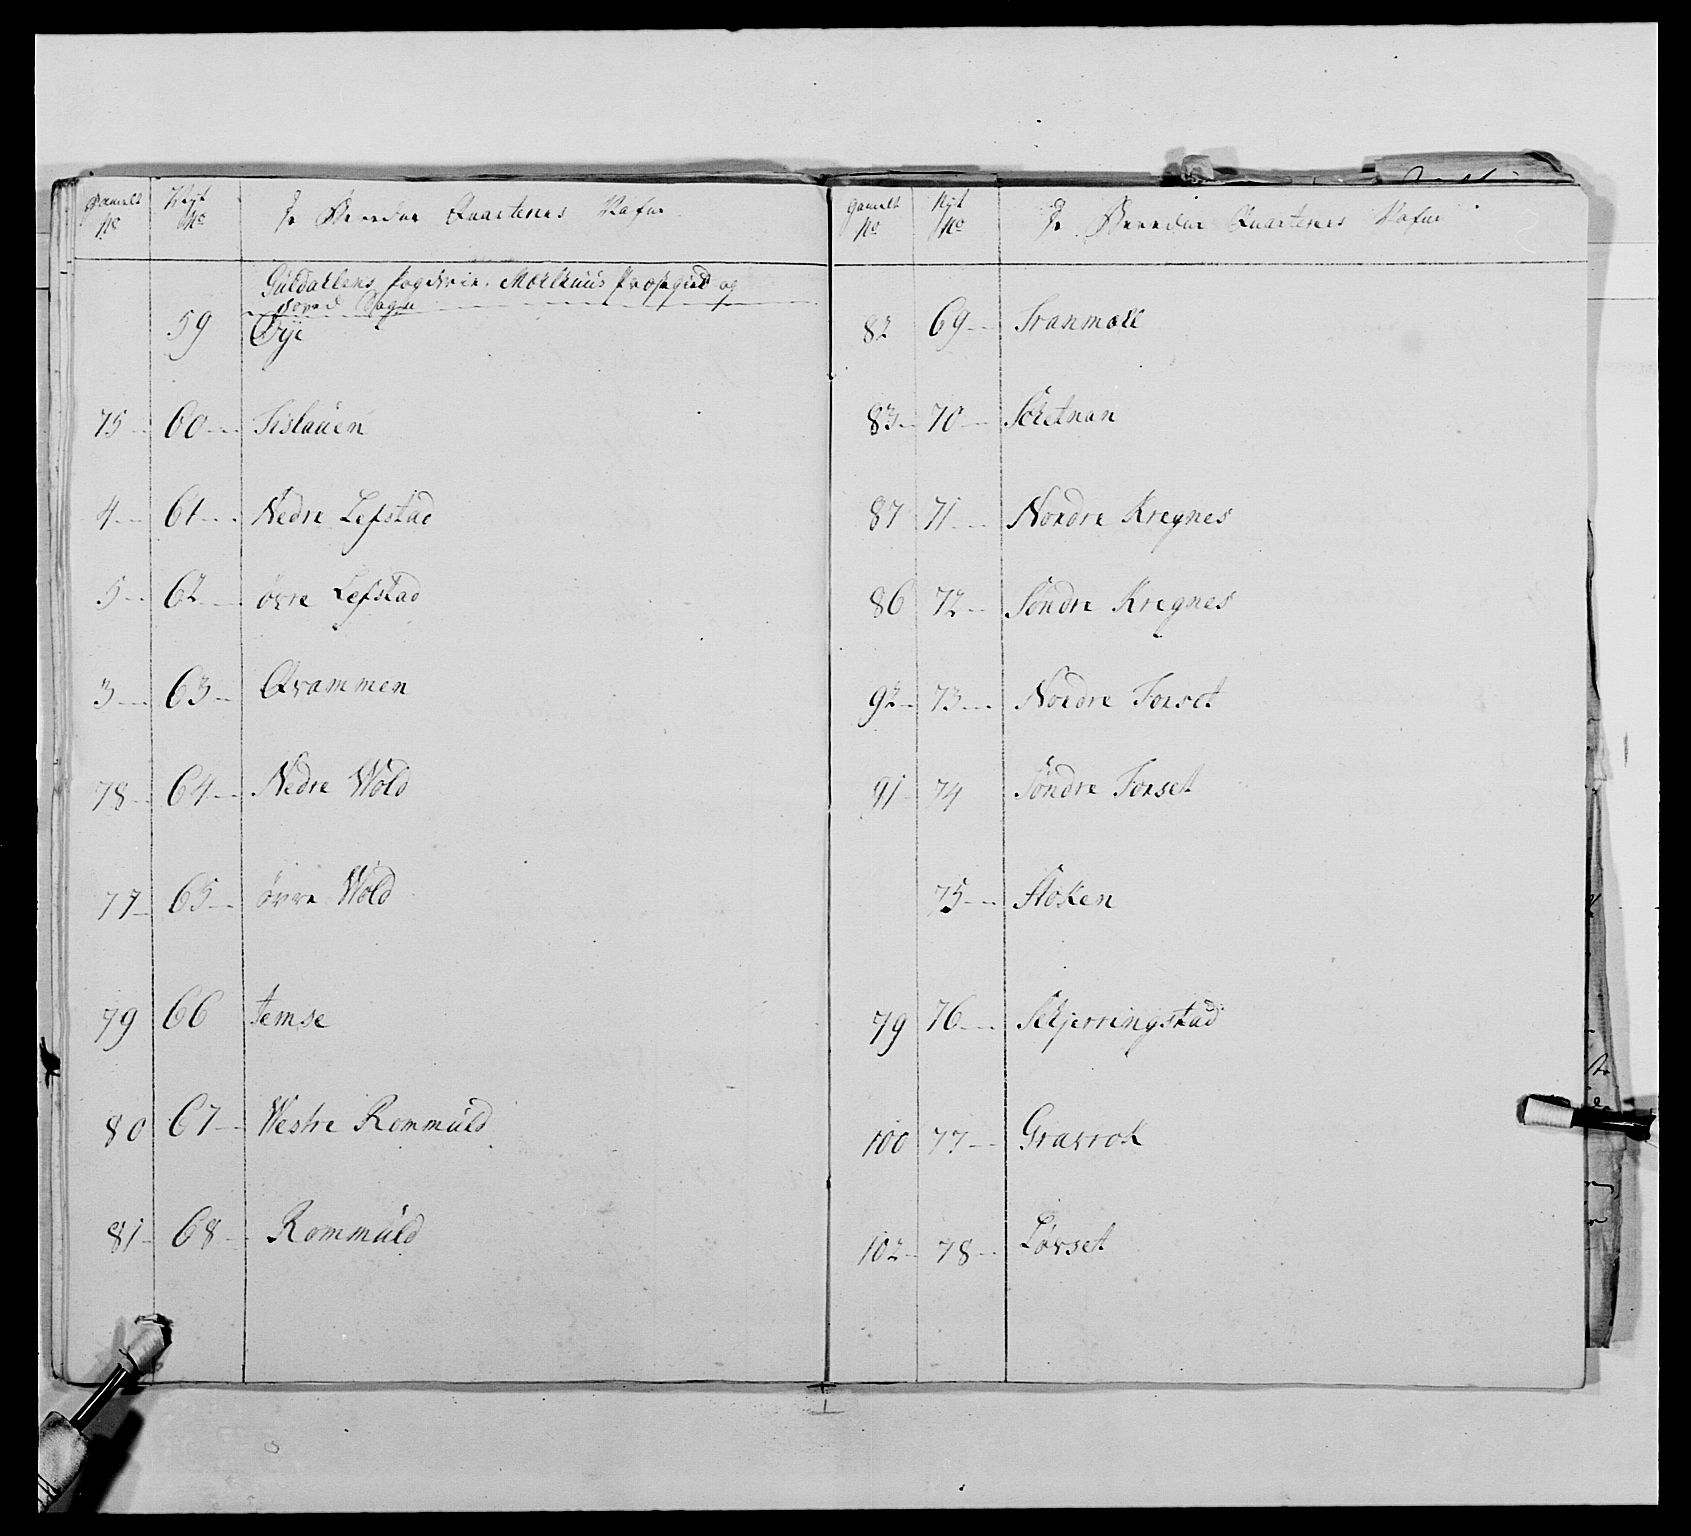 Gamelt No Nyt No Qvarterers
Guldallens Fogderie. Moelhuus Præstegield og
Sogn
59 Øÿe
75 60 Tislauen
4 61 Nedre Lefstad
5 62 øvre Lefstad
3 63 Qvammen
78 64 Nedre Wold
77 65 øvre Wold
79 66 Jemse
80 67 Westre Rommuld
81 68 Rommuld
Gamelt No Nyt No Qvarterers
82 69 Tranmæl
83 70 Sletnan
87 71 Nordre Kregnes
86 72 Søndre Kregnes
92 73 Nordre Forset
91 74 Søndre Forset
75 Floken
79 76 Skjerringstad
100 77 Gravrok
102 78 Løvset